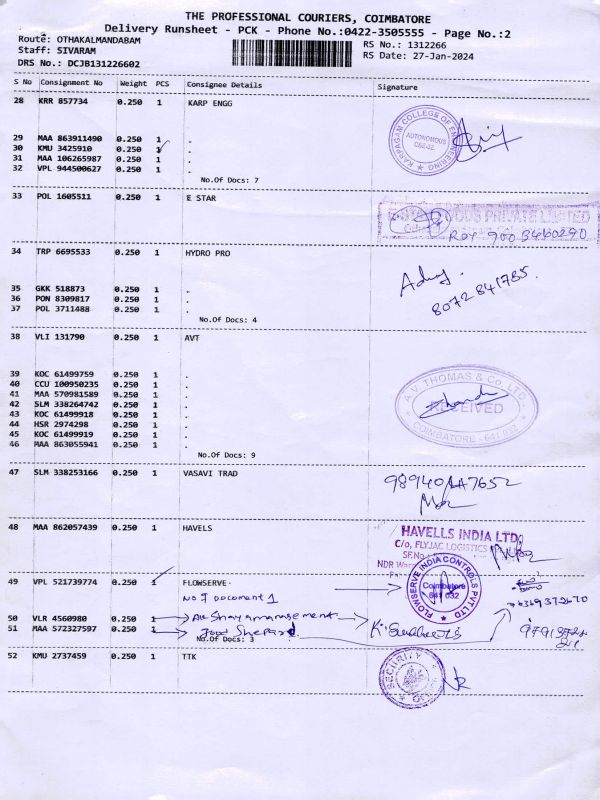 THE PROFESSIONAL COURIERS, COIMBATORE
Delivery Runsheet - PCK - Phone No.:0422-3505555 - Page No.:2
Route: OTHAKALMANDABAM
Staff: SIVARAM
RS No.: 1312266
DRS No.: DCJB131226602
RS Date: 27-Jan-2024
S No Consignment No Weight PCS Consignee Details Signature
28 KRR 857734 0.250 1 KARP ENGG
KARPAGAM COLLEGE OF ENGINEERING
AUTONOMOUS
29 MAA 863911490 0.250 1 .
30 KMU 3425910 0.250 1 .
31 MAA 106265987 0.250 1 .
32 VPL 944500627 0.250 1 .
No.Of Docs: 7
33 POL 1605511 0.250 1 E STAR
PRIVATE LIMITED
34 TRP 6695533 0.250 1 HYDRO PRO
8072841785.
35 GKK 518873 0.250 1 .
36 PON 8309817 0.250 1 .
37 POL 3711488 0.250 1 .
No.Of Docs: 4
38 VLI 131790 0.250 1 AVT
39 KOC 61499759 0.250 1 .
40 CCU 100950235 0.250 1 .
41 MAA 570981589 0.250 1 .
42 SLM 338264742 0.250 1 .
43 KOC 61499918 0.250 1 .
44 HSR 2974298 0.250 1 .
45 KOC 61499919 0.250 1 .
46 MAA 863055941 0.250 1 .
A.V. THOMAS & Co. LTD.
RECEIVED
COIMBATORE - 641 032
No.Of Docs: 9
47 SLM 338253166 0.250 1 VASAVI TRAD
48 MAA 862057439 0.250 1 HAVELS
HAVELLS INDIA LTD
C/o, FLYJAC LOGISTICS
SF.No
49 VPL 521739774 0.250 1 FLOWSERVE
FLOWSERVE INDIA CONTROLS PVT LTD
Coimbatore
641 032
50 VLR 4560980 0.250 1
51 MAA 572327597 0.250 1
No.Of Docs: 3
52 KMU 2737459 0.250 1 TTK
SECURITY